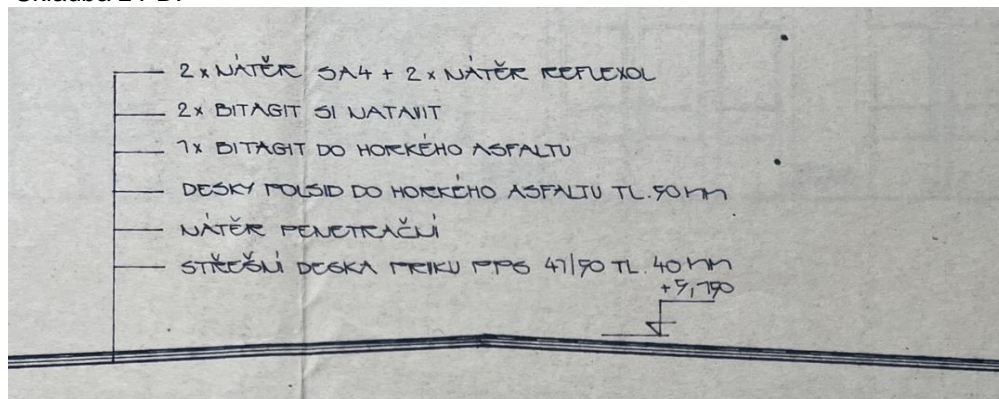 2 x NÁTĚR SA4 + 2 x NÁTĚR REFLEXOL
2x BITAGIT SI NATAVIT
1x BITAGIT DO HORKÉHO ASFALTU
DESKY POLSID DO HORKÉHO ASFALTU TL. 50 mm
NÁTĚR PENETRAČNÍ
STŘEŠNÍ DESKA PPS TL. 40 mm